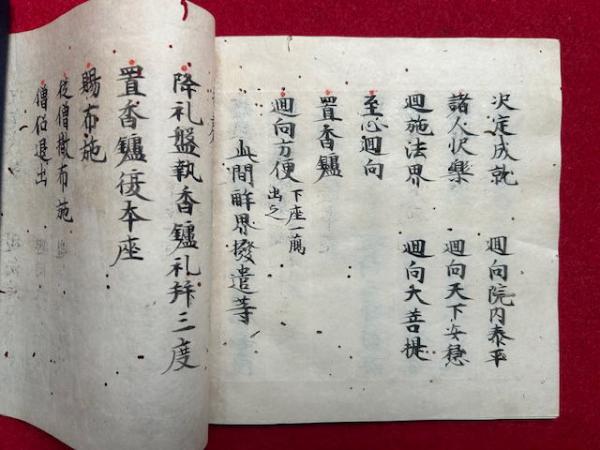 决定成就　廻向院内泰平
諸人快樂　廻向天下安穏
廻施法界　廻向大菩提
至心廻向
置香鑪
廻向方便 下座一﨟出之
此間解界撥遣等
降礼盤執香鑪礼拜三度
置香鑪復本座
賜布施
従僧撤布施
僧伯退出